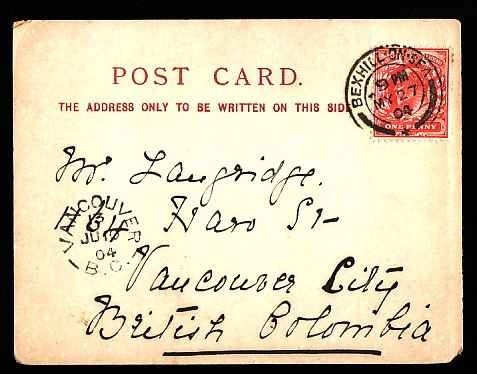 POST CARD.
THE ADDRESS ONLY TO BE WRITTEN ON THIS SIDE
BEXHILL-ON-SEA
9 PM
MY 27
04
ONE PENNY
Mr. Langridge.
Haro St-
Vancouver City
British Colombia
VANCOUVER
JU
04
B.C.